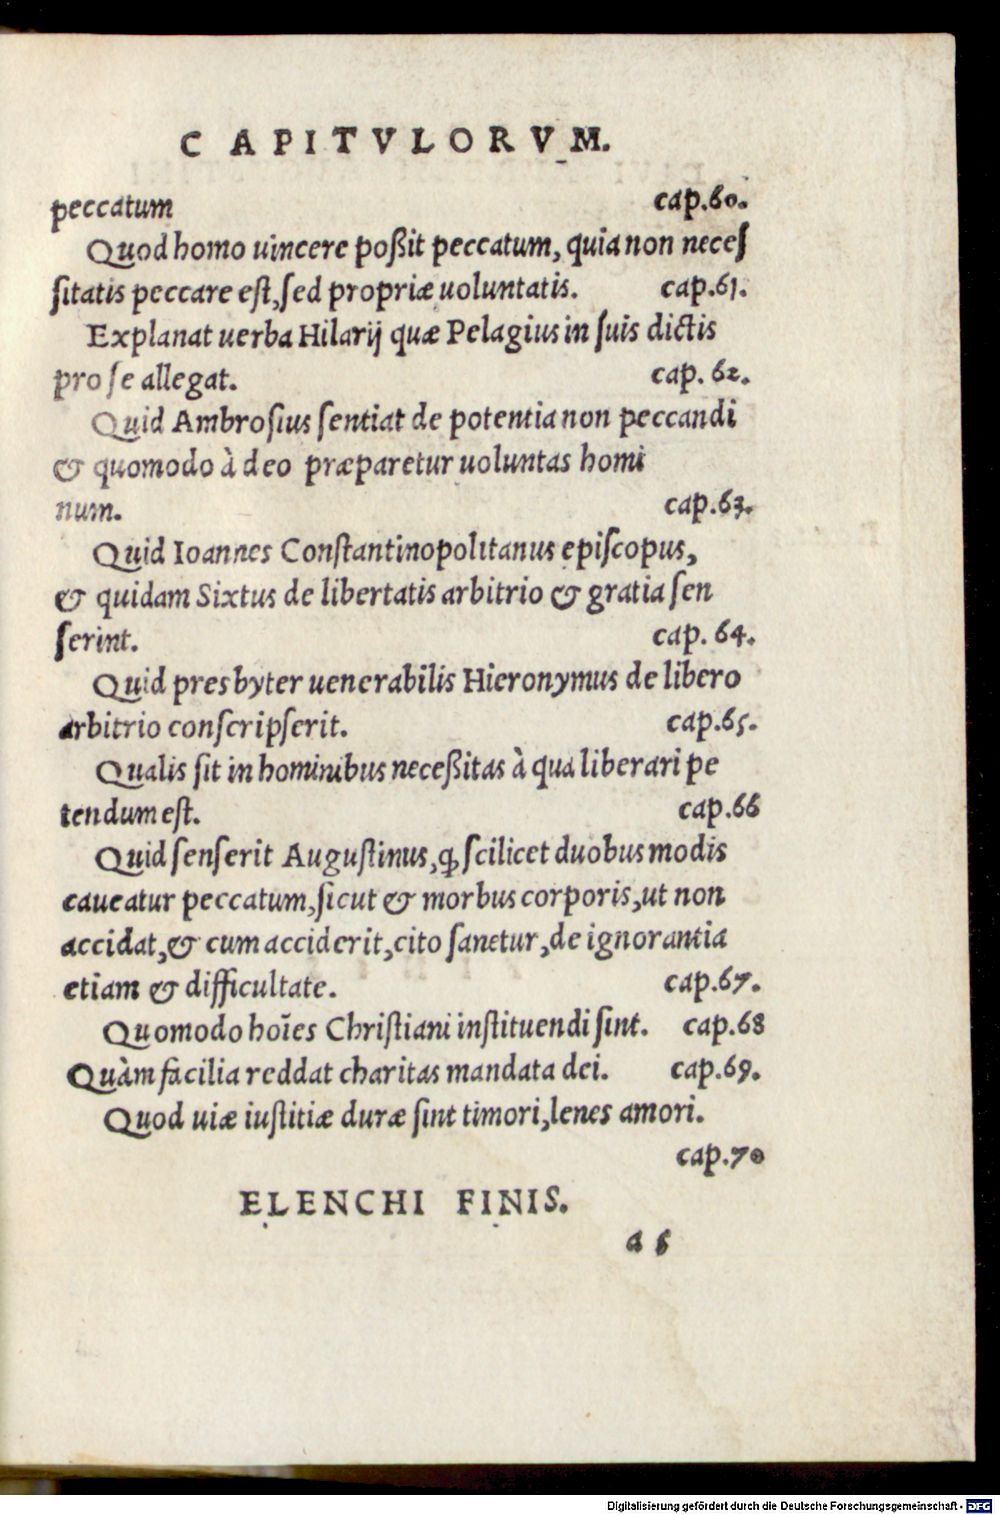 CAPITVLORVM.
peccatum cap.60.
Quod homo uincere poßit peccatum, quia non neceſ
ſitatis peccare eſt, ſed propriæ uoluntatis. cap.61.
Explanat uerba Hilarij quæ Pelagius in ſuis dictis
pro ſe allegat. cap. 62.
Quid Ambroſius ſentiat de potentia non peccandi
& quomodo à deo præparetur uoluntas homi
num. cap.63.
Quid Ioannes Conſtantinopolitanus epiſcopus,
& quidam Sixtus de libertatis arbitrio & gratia ſen
ſerint. cap. 64.
Quid presbyter uenerabilis Hieronymus de libero
arbitrio conſcripſerit. cap.65.
Qualis ſit in hominibus neceßitas à qua liberari pe
tendum eſt. cap.66
Quid ſenſerit Auguſtinus, ꝙ ſcilicet duobus modis
caueatur peccatum, ſicut & morbus corporis, ut non
accidat, & cum acciderit, cito ſanetur, de ignorantia
etiam & difficultate. cap.67.
Quomodo hoīes Chriſtiani inſtituendi ſint. cap.68
Quàm facilia reddat charitas mandata dei. cap.69.
Quod uiæ iuſtitiæ duræ ſint timori, lenes amori.
cap.70
ELENCHI FINIS.
a 5
Digitalisierung gefördert durch die Deutsche Forschungsgemeinschaft - DFG